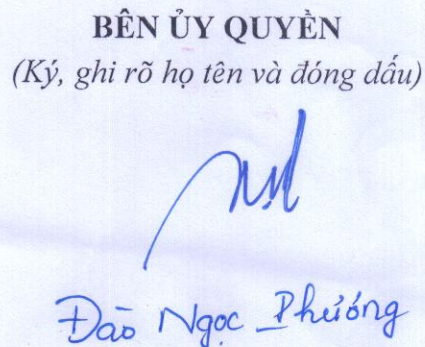 BÊN ỦY QUYỀN
(Ký, ghi rõ họ tên và đóng dấu)
Đào Ngọc Phướng